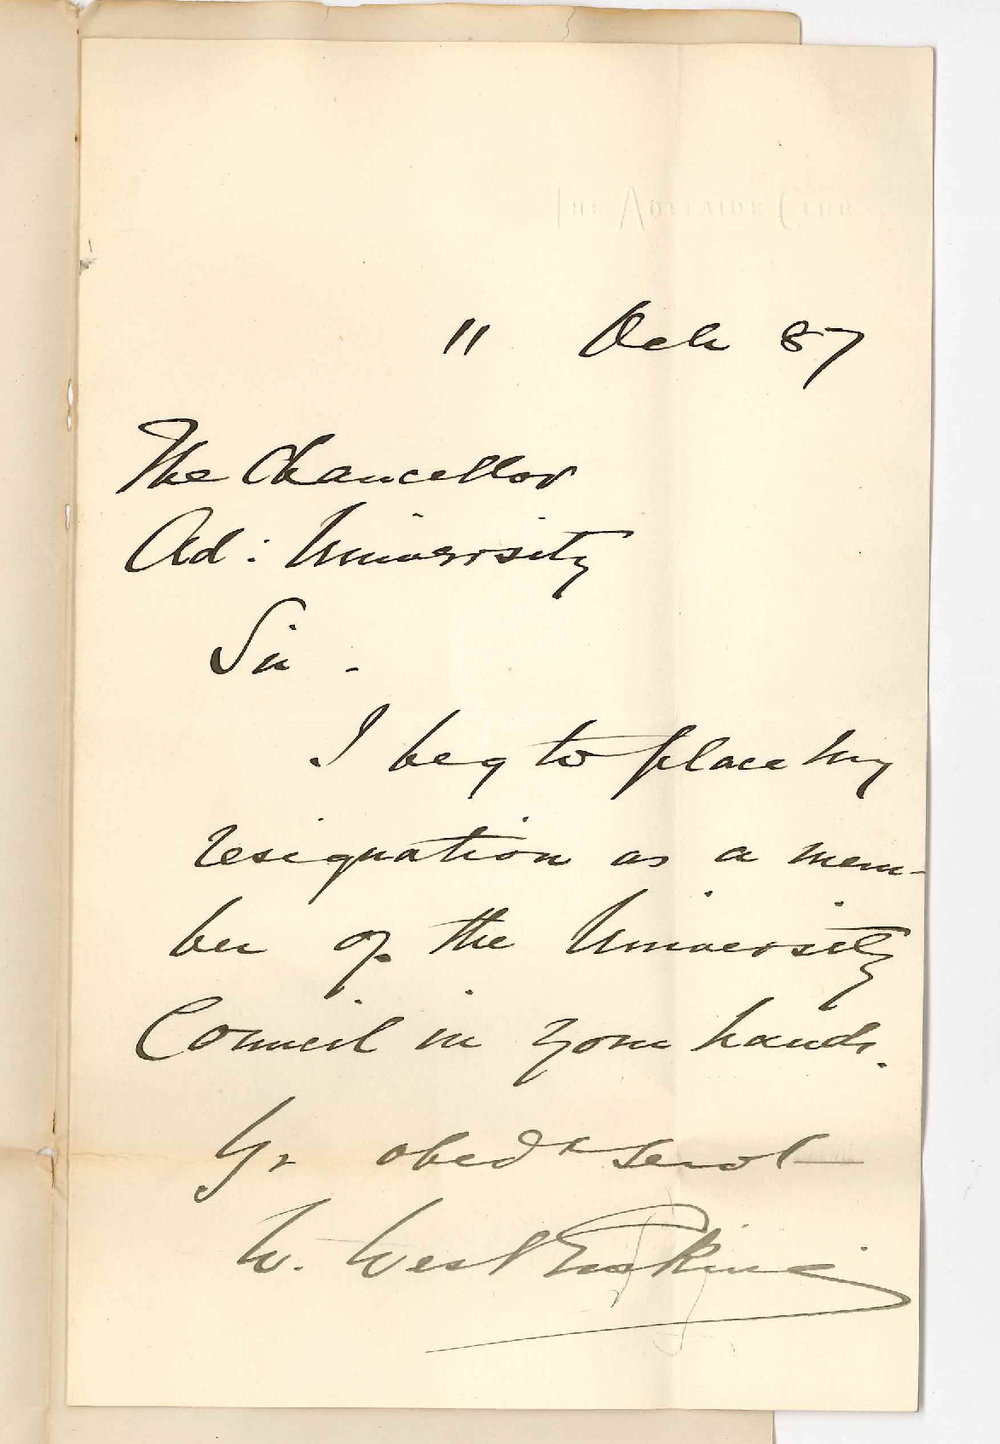 THE ADELAIDE CLUB.
11 Oct 87
The Chancellor
Ad: University
Sir -
I beg to place my
resignation as a mem-
ber of the University
Council in your hands.
Yr obedt servt
W. West Erskine